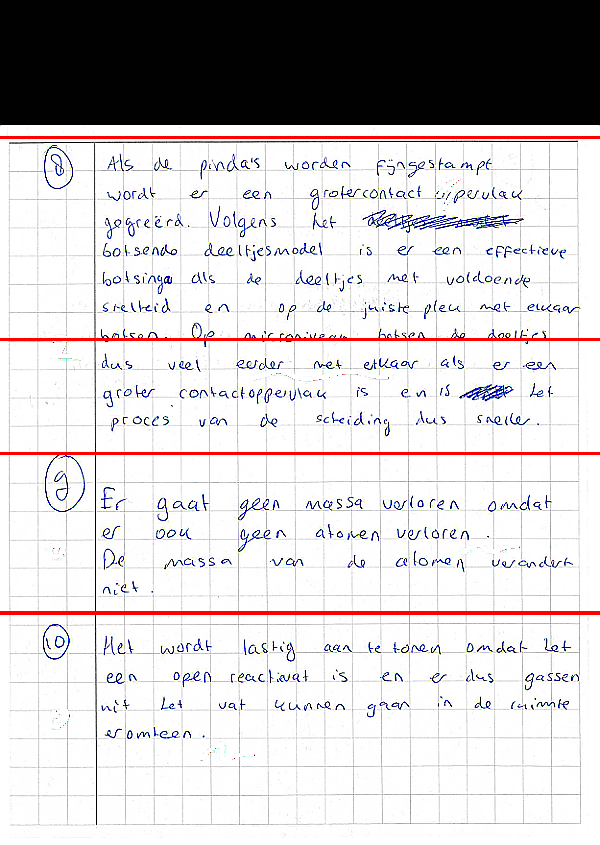 8 Als de pinda's worden fijngestampt
wordt er een groter contact oppervlak
gegreërd. Volgens het
botsende deeltjesmodel is er een effectieve
botsinge als de deeltjes met voldoende
snelheid en op de juiste plek met elkaar
botsen. Op microniveau botsen de deeltjes
dus veel eerder met elkaar als er een
groter contactoppervlak is en is het
proces van de scheiding dus sneller.
9 Er gaat geen massa verloren omdat
er ook geen atomen verloren.
De massa van de atomen verandert
niet.
10 Het wordt lastig aan te tonen omdat het
een open reactievat is en er dus gassen
uit het vat kunnen gaan in de ruimte
eromheen.